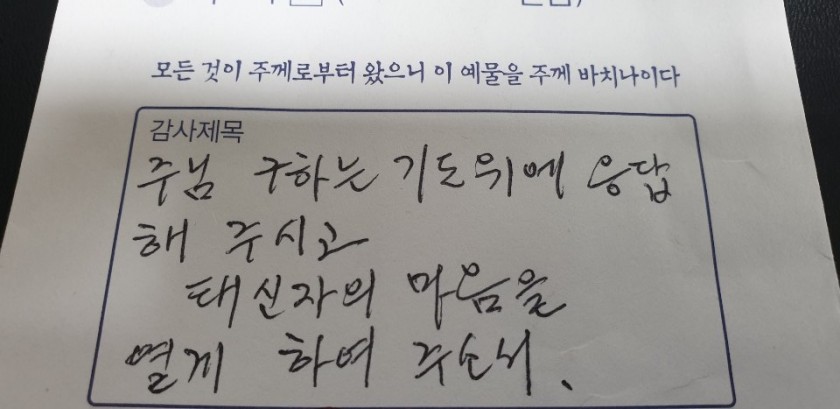 모든 것이 주께로부터 왔으니 이 예물을 주께 바치나이다
감사제목
주님 구하는 기도위에 응답
해 주시고
태신자의 마음을
열게 하여 주소서.